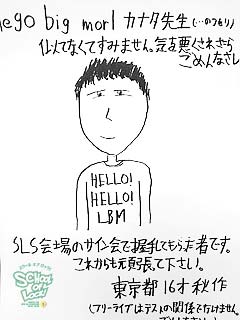 nego big morl カナタ先生(…のつもり)
似てなくてすみません。気を悪くされたら
ごめんなさい
HELLO!
HELLO!
LBM
SLS会場のサイン会で握手してもらった者です。
これからも頑張って下さい。
School of Lock!
東京都 16才 秋作
(フリーライブはテストの関係で行けません。